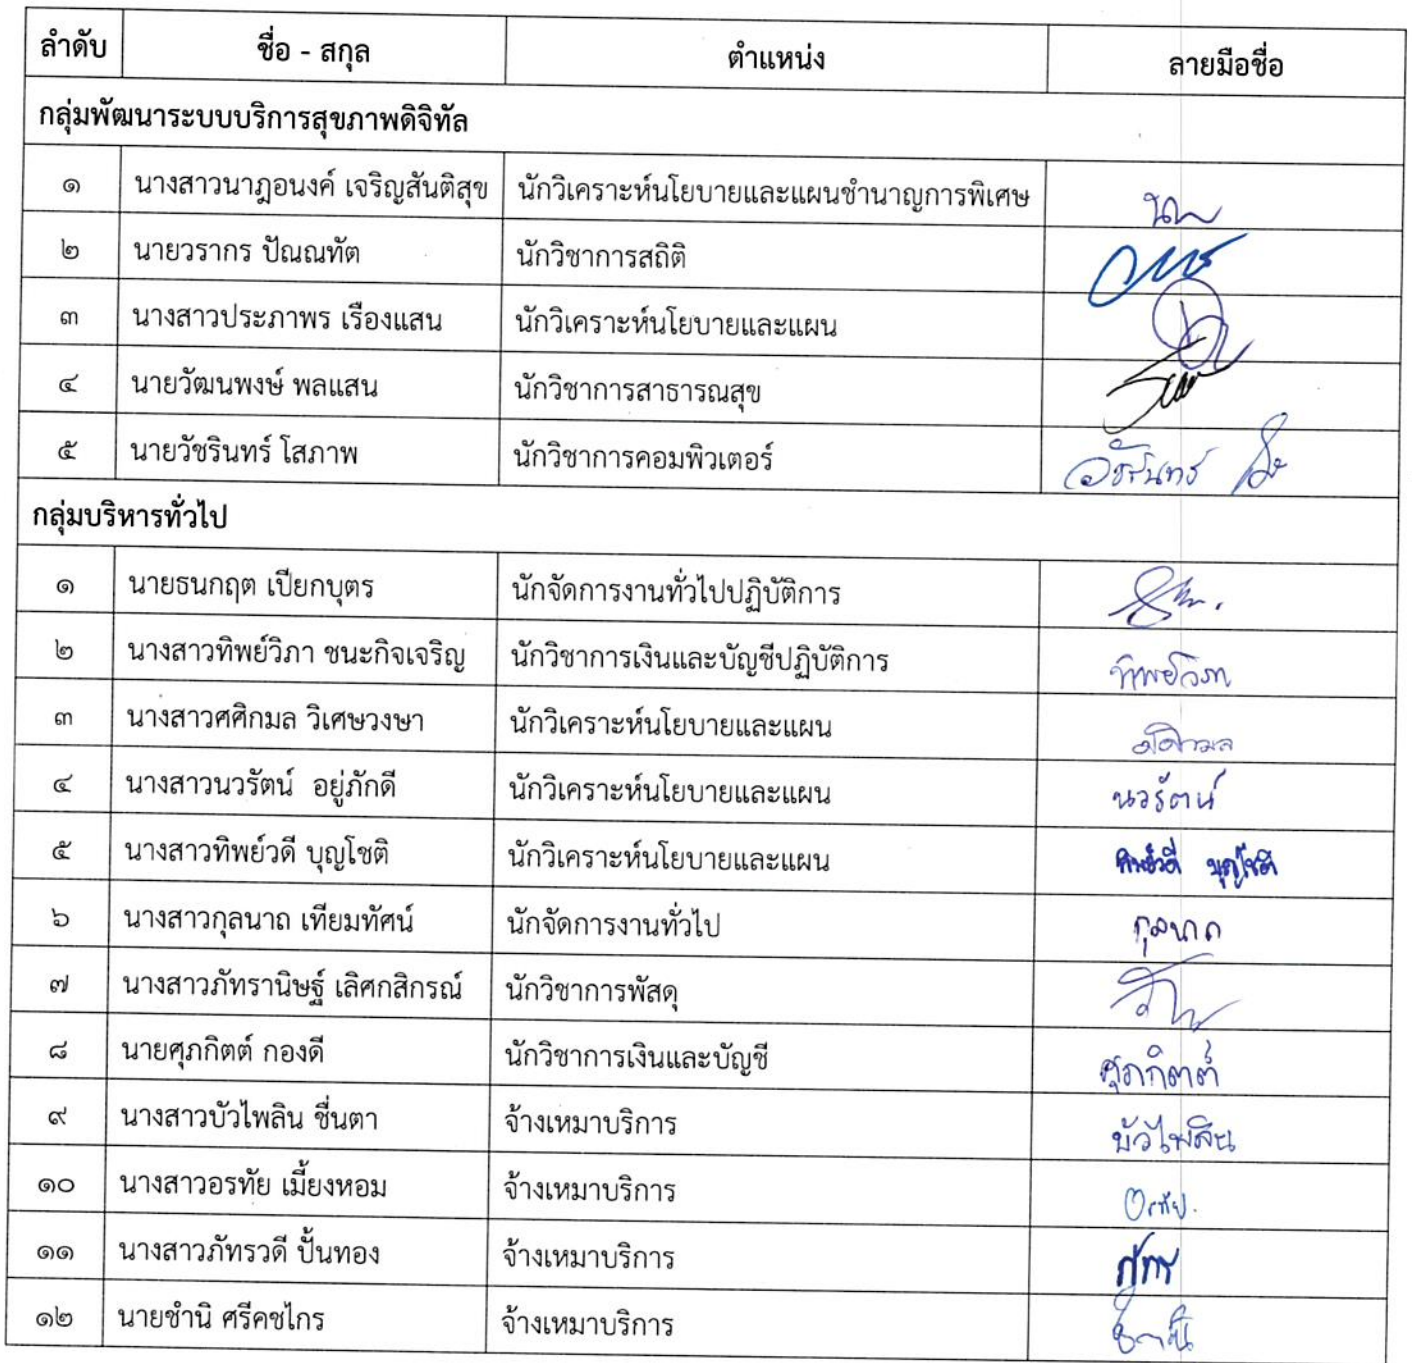 ลำดับ ชื่อ - สกุล ตำแหน่ง ลายมือชื่อ
กลุ่มพัฒนาระบบบริการสุขภาพดิจิทัล
๑ นางสาวนาฎอนงค์ เจริญสันติสุข นักวิเคราะห์นโยบายและแผนชำนาญการพิเศษ
๒ นายวรากร ปัณณทัต นักวิชาการสถิติ
๓ นางสาวประภาพร เรืองแสน นักวิเคราะห์นโยบายและแผน
๔ นายวัฒนพงษ์ พลแสน นักวิชาการสาธารณสุข
๕ นายวัชรินทร์ โสภาพ นักวิชาการคอมพิวเตอร์ วัชรินทร์
กลุ่มบริหารทั่วไป
๑ นายธนกฤต เปียกบุตร นักจัดการงานทั่วไปปฏิบัติการ
๒ นางสาวทิพย์วิภา ชนะกิจเจริญ นักวิชาการเงินและบัญชีปฏิบัติการ ทิพย์วิภา
๓ นางสาวศศิกมล วิเศษวงษา นักวิเคราะห์นโยบายและแผน ศศิกมล
๔ นางสาวนวรัตน์ อยู่ภักดี นักวิเคราะห์นโยบายและแผน นวรัตน์
๕ นางสาวทิพย์วดี บุญโชติ นักวิเคราะห์นโยบายและแผน ทิพย์วดี บุญโชติ
๖ นางสาวกุลนาถ เทียมทัศน์ นักจัดการงานทั่วไป กุลนาถ
๗ นางสาวภัทรานิษฐ์ เลิศกสิกรณ์ นักวิชาการพัสดุ
๘ นายศุภกิตต์ กองดี นักวิชาการเงินและบัญชี ศุภกิตต์
๙ นางสาวบัวไพลิน ชื่นตา จ้างเหมาบริการ บัวไพลิน
๑๐ นางสาวอรทัย เมี้ยงหอม จ้างเหมาบริการ อรทัย.
๑๑ นางสาวภัทรวดี ปั้นทอง จ้างเหมาบริการ ภัทร
๑๒ นายชำนิ ศรีคชไกร จ้างเหมาบริการ